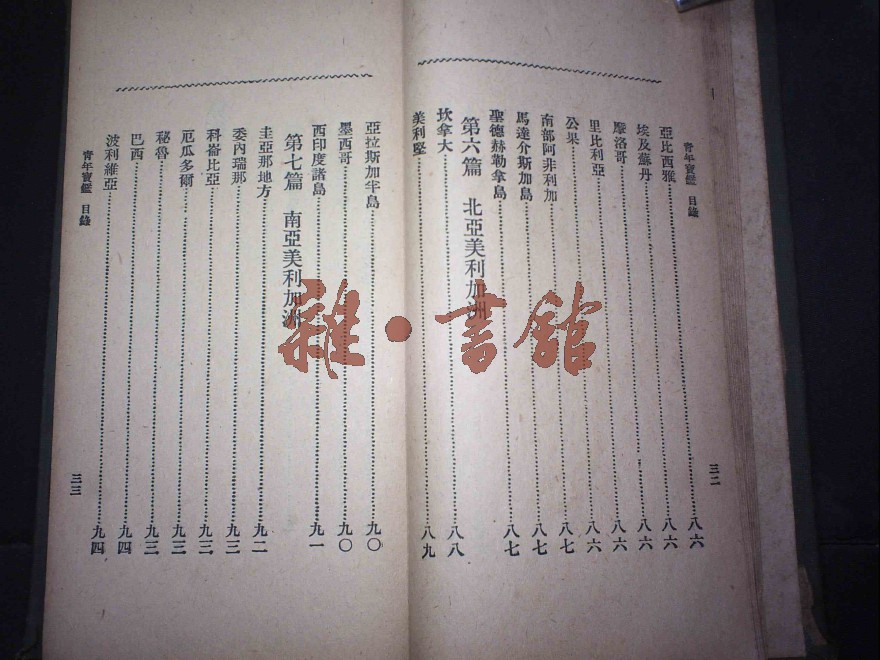 青年寶鑑 目錄
三二
亞比西雅……八六
埃及蘇丹……八六
摩洛哥……八六
里比利亞……八六
公果……八六
南部阿非利加……八七
馬達介斯加島……八七
聖德赫勒拿島……八七
第六篇 北亞美利加洲
坎拿大……八八
美利堅……八九
亞拉斯加半島……九〇
墨西哥……九〇
西印度諸島……九一
第七篇 南亞美利加洲
圭亞那地方……九二
委內瑞那……九三
科崙比亞……九三
厄瓜多爾……九三
秘魯……九三
巴西……九四
波利維亞……九四
青年寶鑑 目錄
三三
雜·書館